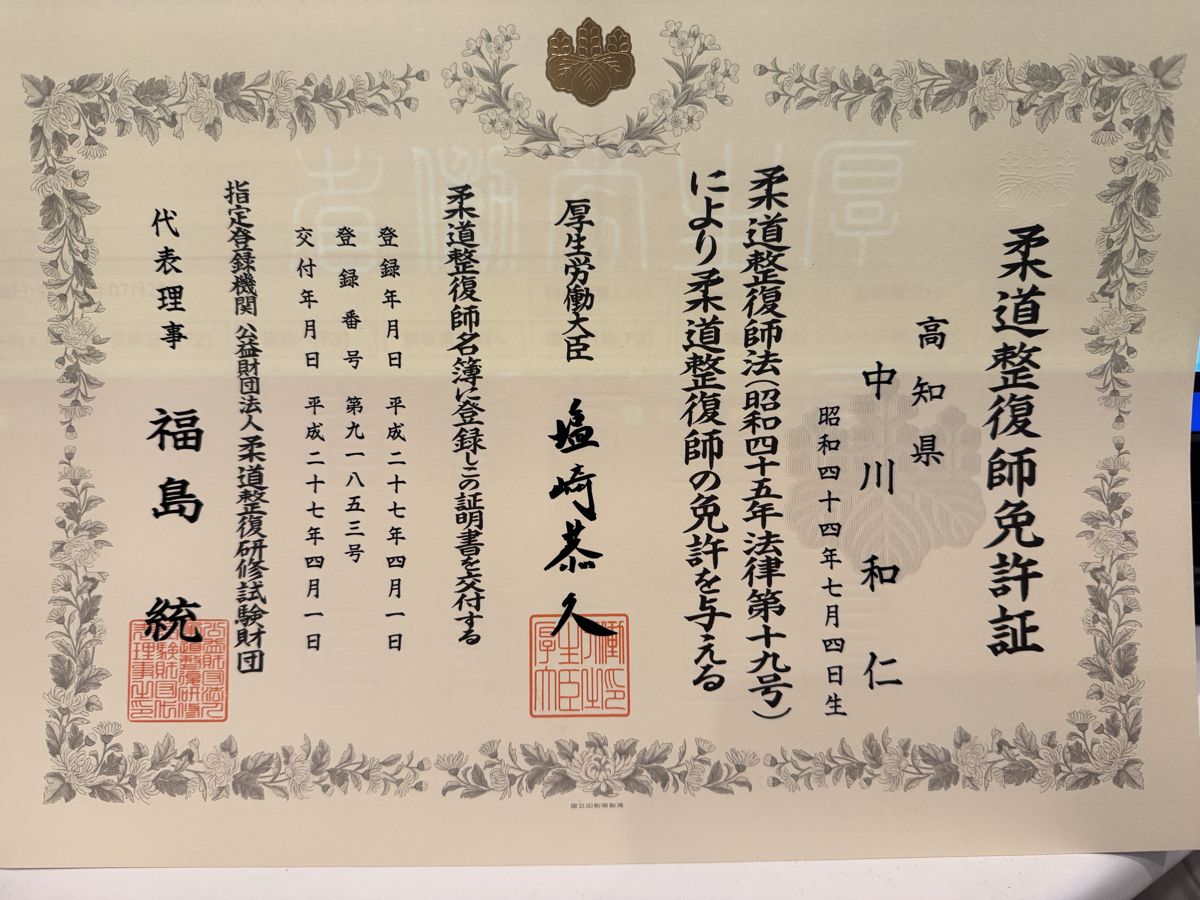 柔道整復師免許証
高知県
中川和仁
昭和四十四年七月四日生
柔道整復師法(昭和四十五年法律第十九号)
により柔道整復師の免許を与える
厚生労働大臣 塩崎恭久
柔道整復師名簿に登録しこの証明書を交付する
登録年月日 平成二十七年四月一日
登録番号 第九一八五三号
交付年月日 平成二十七年四月一日
指定登録機関 公益財団法人柔道整復研修試験財団
代表理事 福島統
厚生労働省
国立印刷局製造